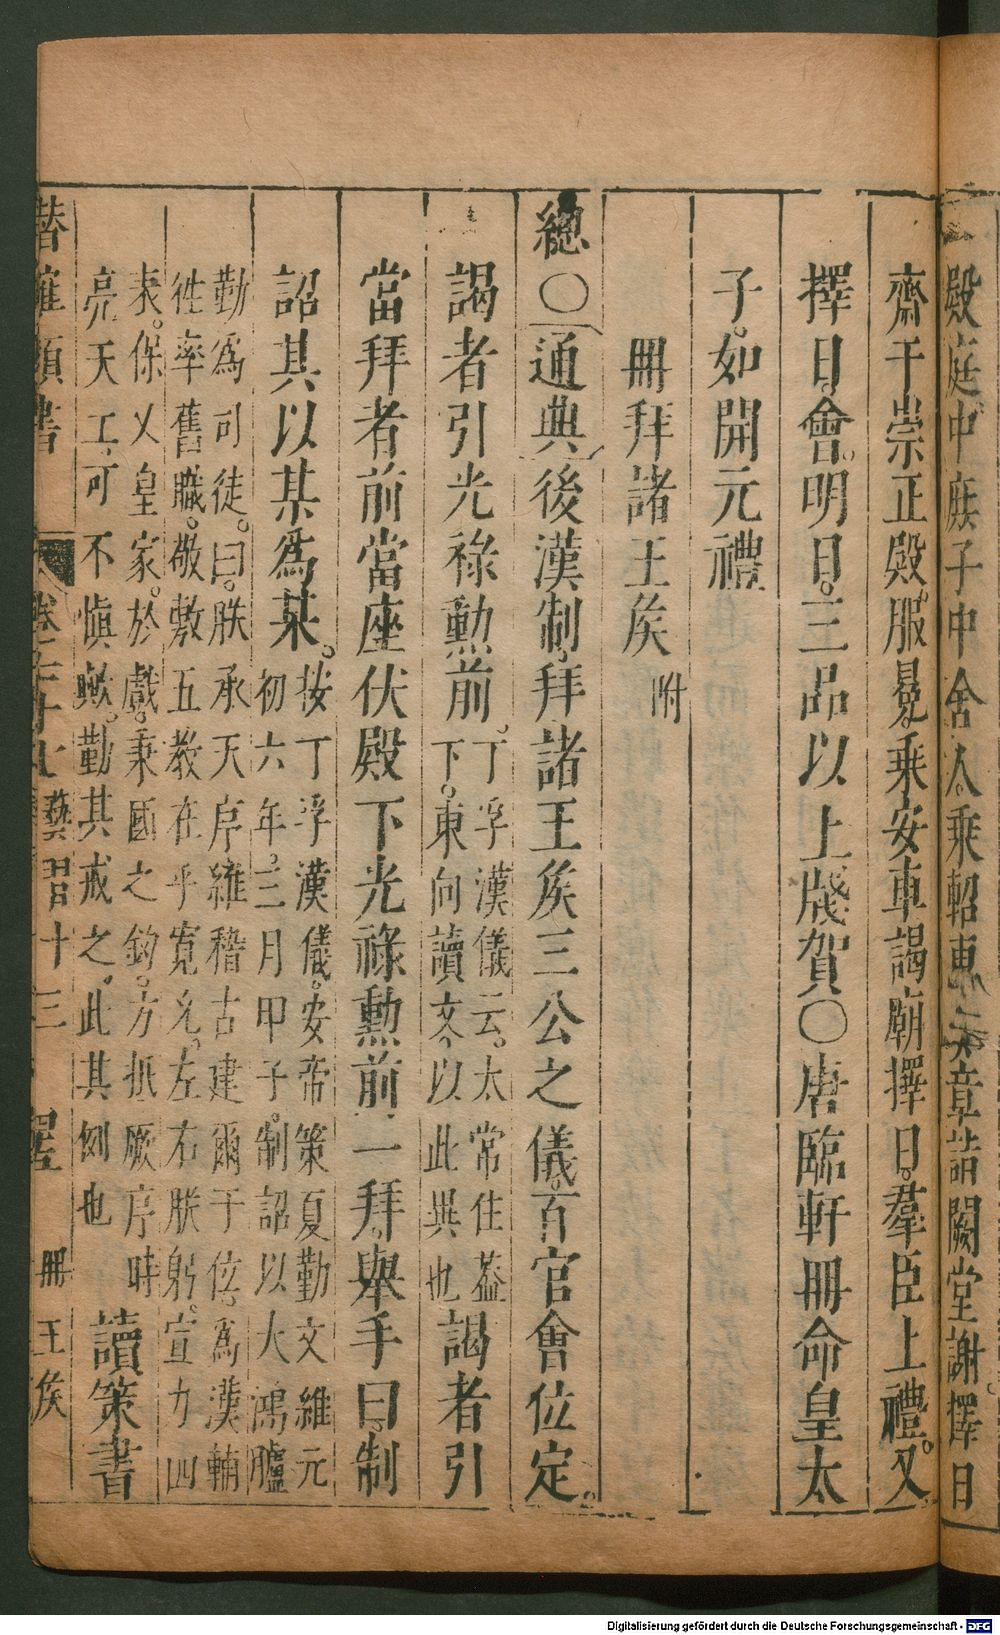 殿庭中庶子中舍人乘軺車𧼈章詣闕堂謝擇日
齋于崇正殿。服冕乘安車謁廟擇日。羣臣上禮。又
擇日。會。明日。三品以上牋賀〇唐臨軒冊命皇太
子。如開元禮
冊拜諸王矦附
總〇通典後漢制。拜諸王矦三公之儀。百官會位定。
謁者引光祿勲前。丁孚漢儀云。太常住蓋
下。東向讀文。以此異也謁者引
當拜者前當座伏殿下光祿勲前一拜。舉手曰。制
詔其以某爲某。按丁孚漢儀。安帝策夏勤文維元
初六年。三月甲子。制詔以大鴻臚
勤爲司徒。曰。朕承天序。維稽古建爾于位。爲漢輔
徃率舊職。敬敷五教。在乎寬允。左右朕躬。宣力四
表。保乂皇家。於戲。秉國之鈞。方抵厥序時
亮天工。可不慎歟。勤其戒之。此其例也讀策書
卷二十七 藝習十三 冊王矦
Digitalisierung gefördert durch die Deutsche Forschungsgemeinschaft - DFG